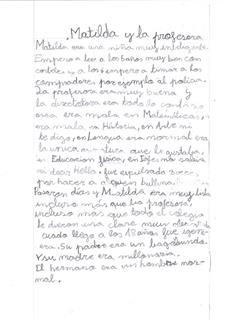 Matilda y la profesora
Matilda era una niña muy inteligente.
Empezó a leer a los años muy bien con
a los empezó a tomar a los
compradores por ejemplo al policia.
La profesora era muy buena y
la directora era todo lo contrario
era mala en Matemáticas,
era mala en Historia, en Arte ni
te digo, en lengua era normal era
la unica que le gustaba,
en Educacion fisica, en Ingles no sabia
ni decir Hello, fue expulsado
por hacer a bullin
Pasaron dias y Matilda era muy lista
incluso más que la profesora,
incluso más que todo el colegio
le dieron una clase muy
cuado llego a los 18 años fue
Su padre era un bagabundo
Y su madre era millonaria.
El hermano era un hombre nor-
mal.